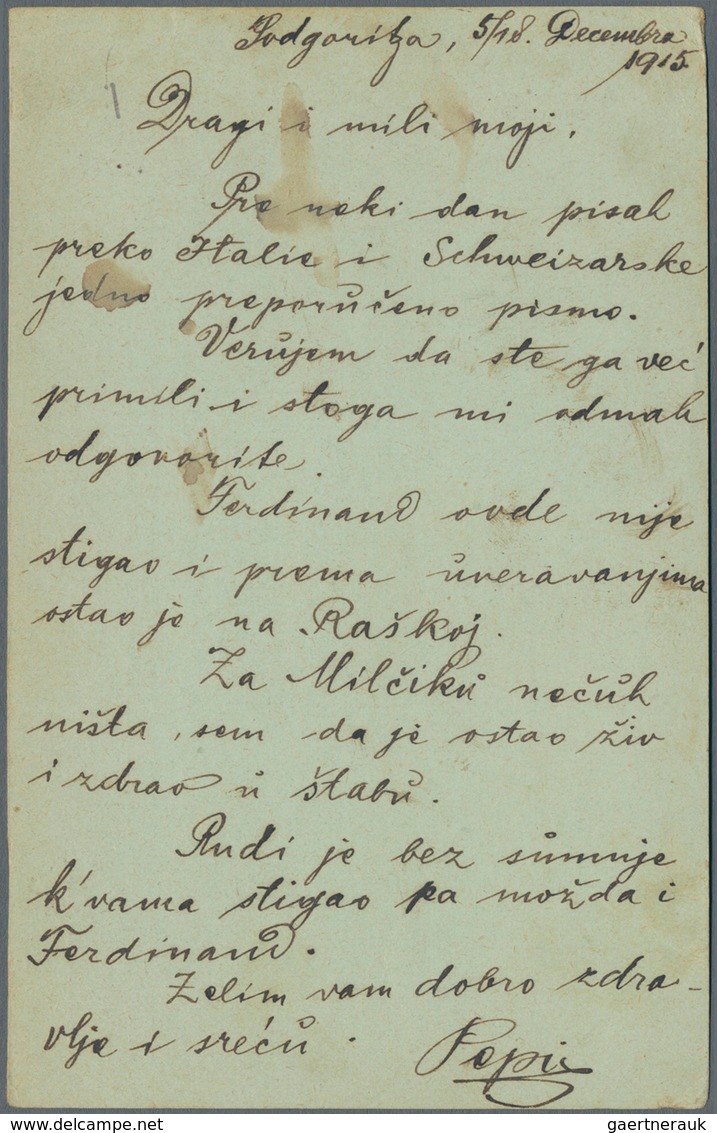 Podgoritza, 5/18. Decembra
1915
Dragi i mili moji,
Pre neki dan pisah
preko Italie i Schweizarske
jedno preporučeno pismo.
Verujem da ste ga već
primili i stoga mi odmah
odgovorite.
Ferdinand ovde nije
stigao i prema uveravanjima
ostao je na Raškoj.
Za Milčiku nečuh
ništa, sem da je ostao živ
i zdrav u štabu.
Rudi je bez sumnje
k'vama stigao pa možda i
Ferdinand.
Želim vam dobro zdra-
vlje i sreću.
Pepi
delcampe.net
gaertnerauk